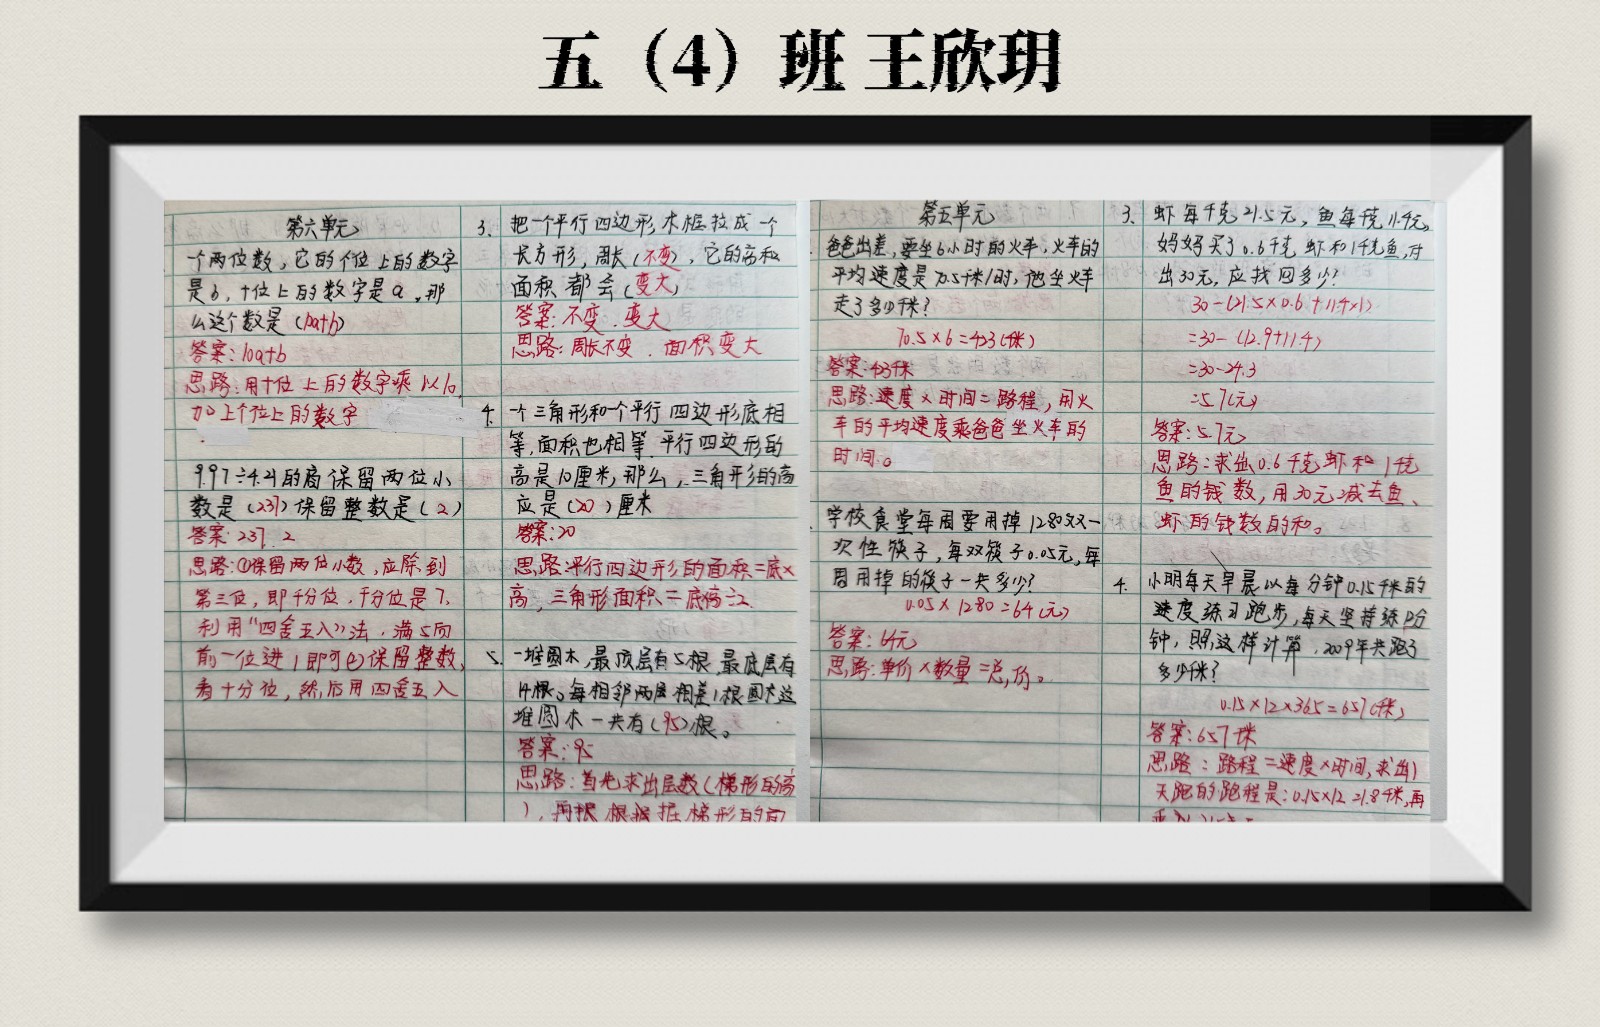 五（4）班 王欣玥
第六单元
个两位数，它的个位上的数字
是b，十位上的数字是a，那
么这个数是（10a+b）
答案：10a+b
思路：用十位上的数字乘以10，
加上个位上的数字
9.97÷4.21的商保留两位小
数是（2.37）保留整数是（2）
答案：2.37 2
思路：①保留两位小数，应除到
第三位，即千分位，千分位是7，
利用“四舍五入”法，满5向
前一位进1即可②保留整数，
看十分位，然后用四舍五入
3. 把一个平行四边形木框拉成一个
长方形，周长（不变），它的高和
面积都会（变大）
答案：不变．变大
思路：周长不变．面积变大
4. 一个三角形和个平行四边形底相
等，面积也相等．平行四边形的
高是10厘米，那么，三角形的高
应是（20）厘米
答案：20
思路：平行四边形的面积=底×
高，三角形面积=底高÷2.
5. 一堆圆木，最顶层有5根，最底层有
14根。每相邻两层相差1根圆木这
堆圆木一共有（95）根。
答案：95
思路：首先求出层数（梯形的高
），再根 根据梯形的面
第五单元
爸爸出差，要坐6小时的火车，火车的
平均速度是70.5千米/时，他坐火车
走了多少千米？
70.5×6=423（千米）
答案：423千米
思路：速度×时间=路程，用火
车的平均速度乘爸爸坐火车的
时间。
学校食堂每周要用掉1280双一
次性筷子，每双筷子0.05元，每
周用掉的筷子一共多少？
0.05×1280=64（元）
答案：64元
思路：单价×数量=总价。
3. 虾每千克21.5元，鱼每千克11.4元，
妈妈买了0.6千克虾和1千克鱼，付
出30元，应找回多少？
30-（21.5×0.6+11.4×1）
=30-（12.9+11.4）
=30-24.3
=5.7（元）
答案：5.7元
思路：求出0.6千克虾和1千克
鱼的钱数，用30元减去鱼、
虾的钱数的和。
4. 小明每天早晨以每分钟0.15千米的
速度练习跑步，每天坚持练12分
钟，照这样计算，2009年共跑了
多少千米？
0.15×12×365=657（千米）
答案：657千米
思路：路程=速度×时间，求出1
天跑的路程是：0.15×12=1.8千米，再